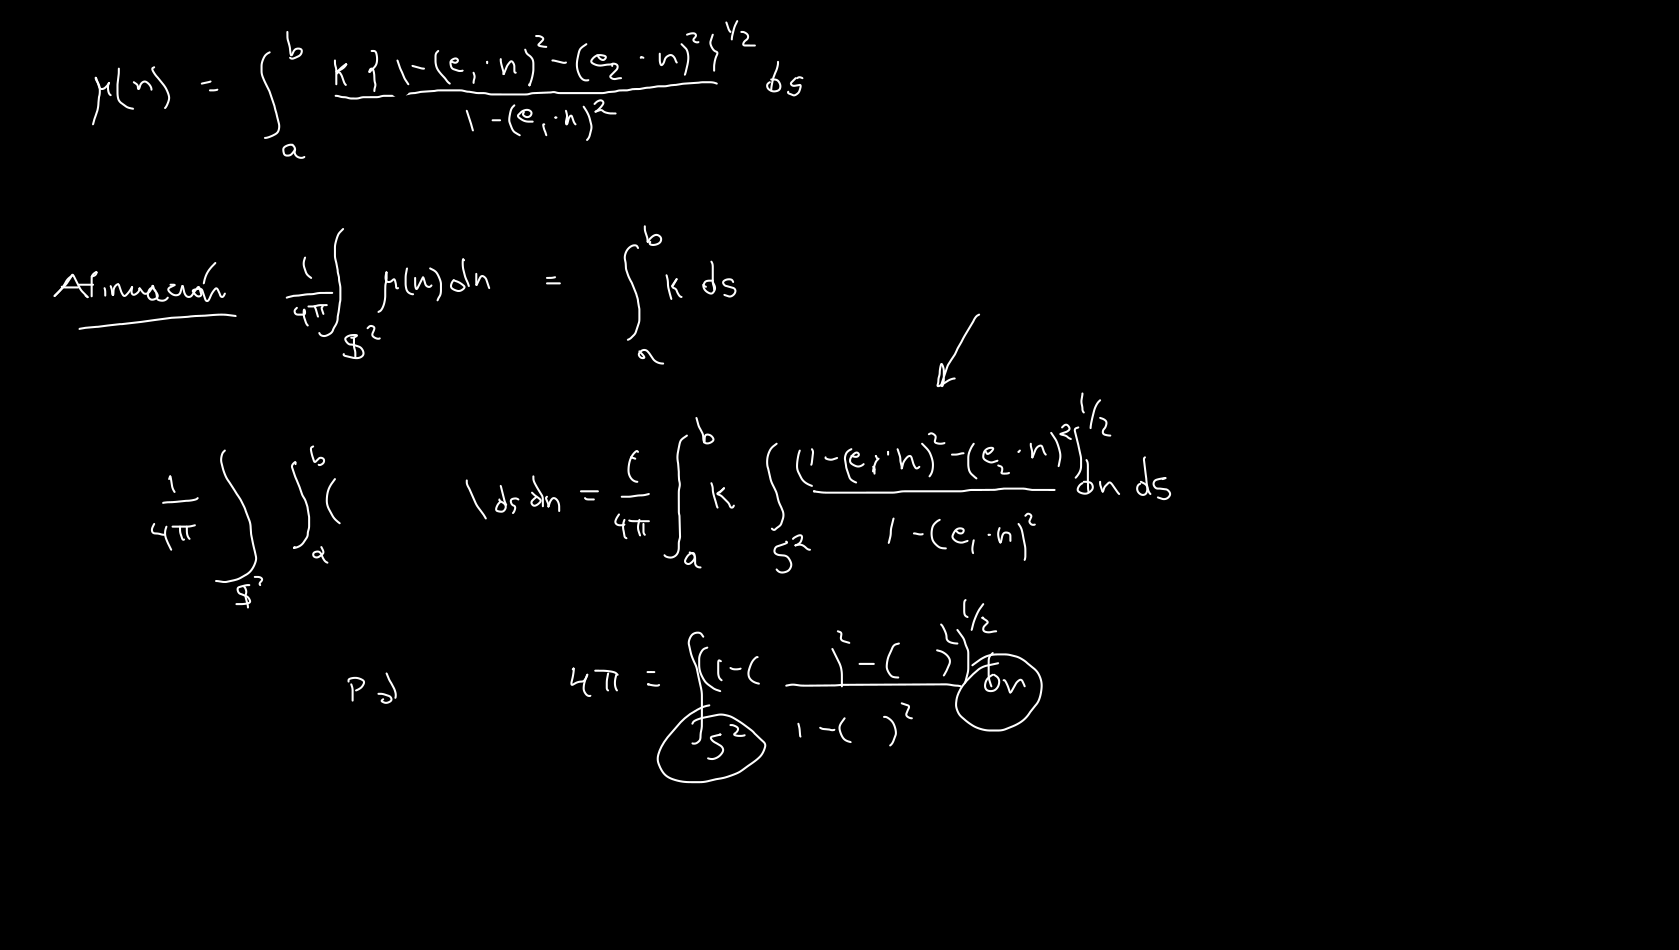 μ(n) = ∫_a^b K {1-(e₁·n)²-(e₂·n)²}^{1/2} / 1-(e₁·n)² ds
Afirmación 1/4π ∫_{S²} μ(n) dn = ∫_a^b K ds
1/4π ∫_{S²} ∫_a^b ( ) ds dn = 1/4π ∫_a^b K ∫_{S²} (1-(e₁·n)²-(e₂·n)²)^{1/2} / 1-(e₁·n)² dn ds
Pd 4π = ∫_{S²} (1-( )²-( )²)^{1/2} / 1-( )² dn